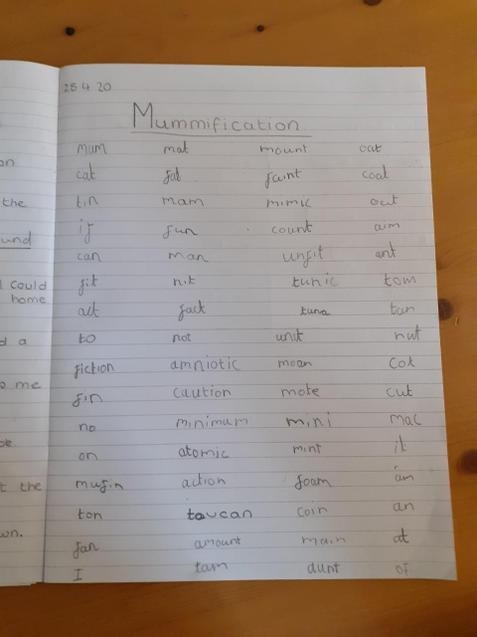 on
the
und
I could
home
d a
o me
t the
wn.
25.4.20
Mummification
mum mat mount oat
cat fat faint coat
tin mam mimic out
if fun count aim
can man unfit ant
fit nit tunic tom
act fact tuna tan
to not unit nut
fiction amniotic moan cot
fin caution mote cut
no minimum mini mac
on atomic mint it
mufin action foam am
ton toucan coin an
fan amount main at
I tam aunt of